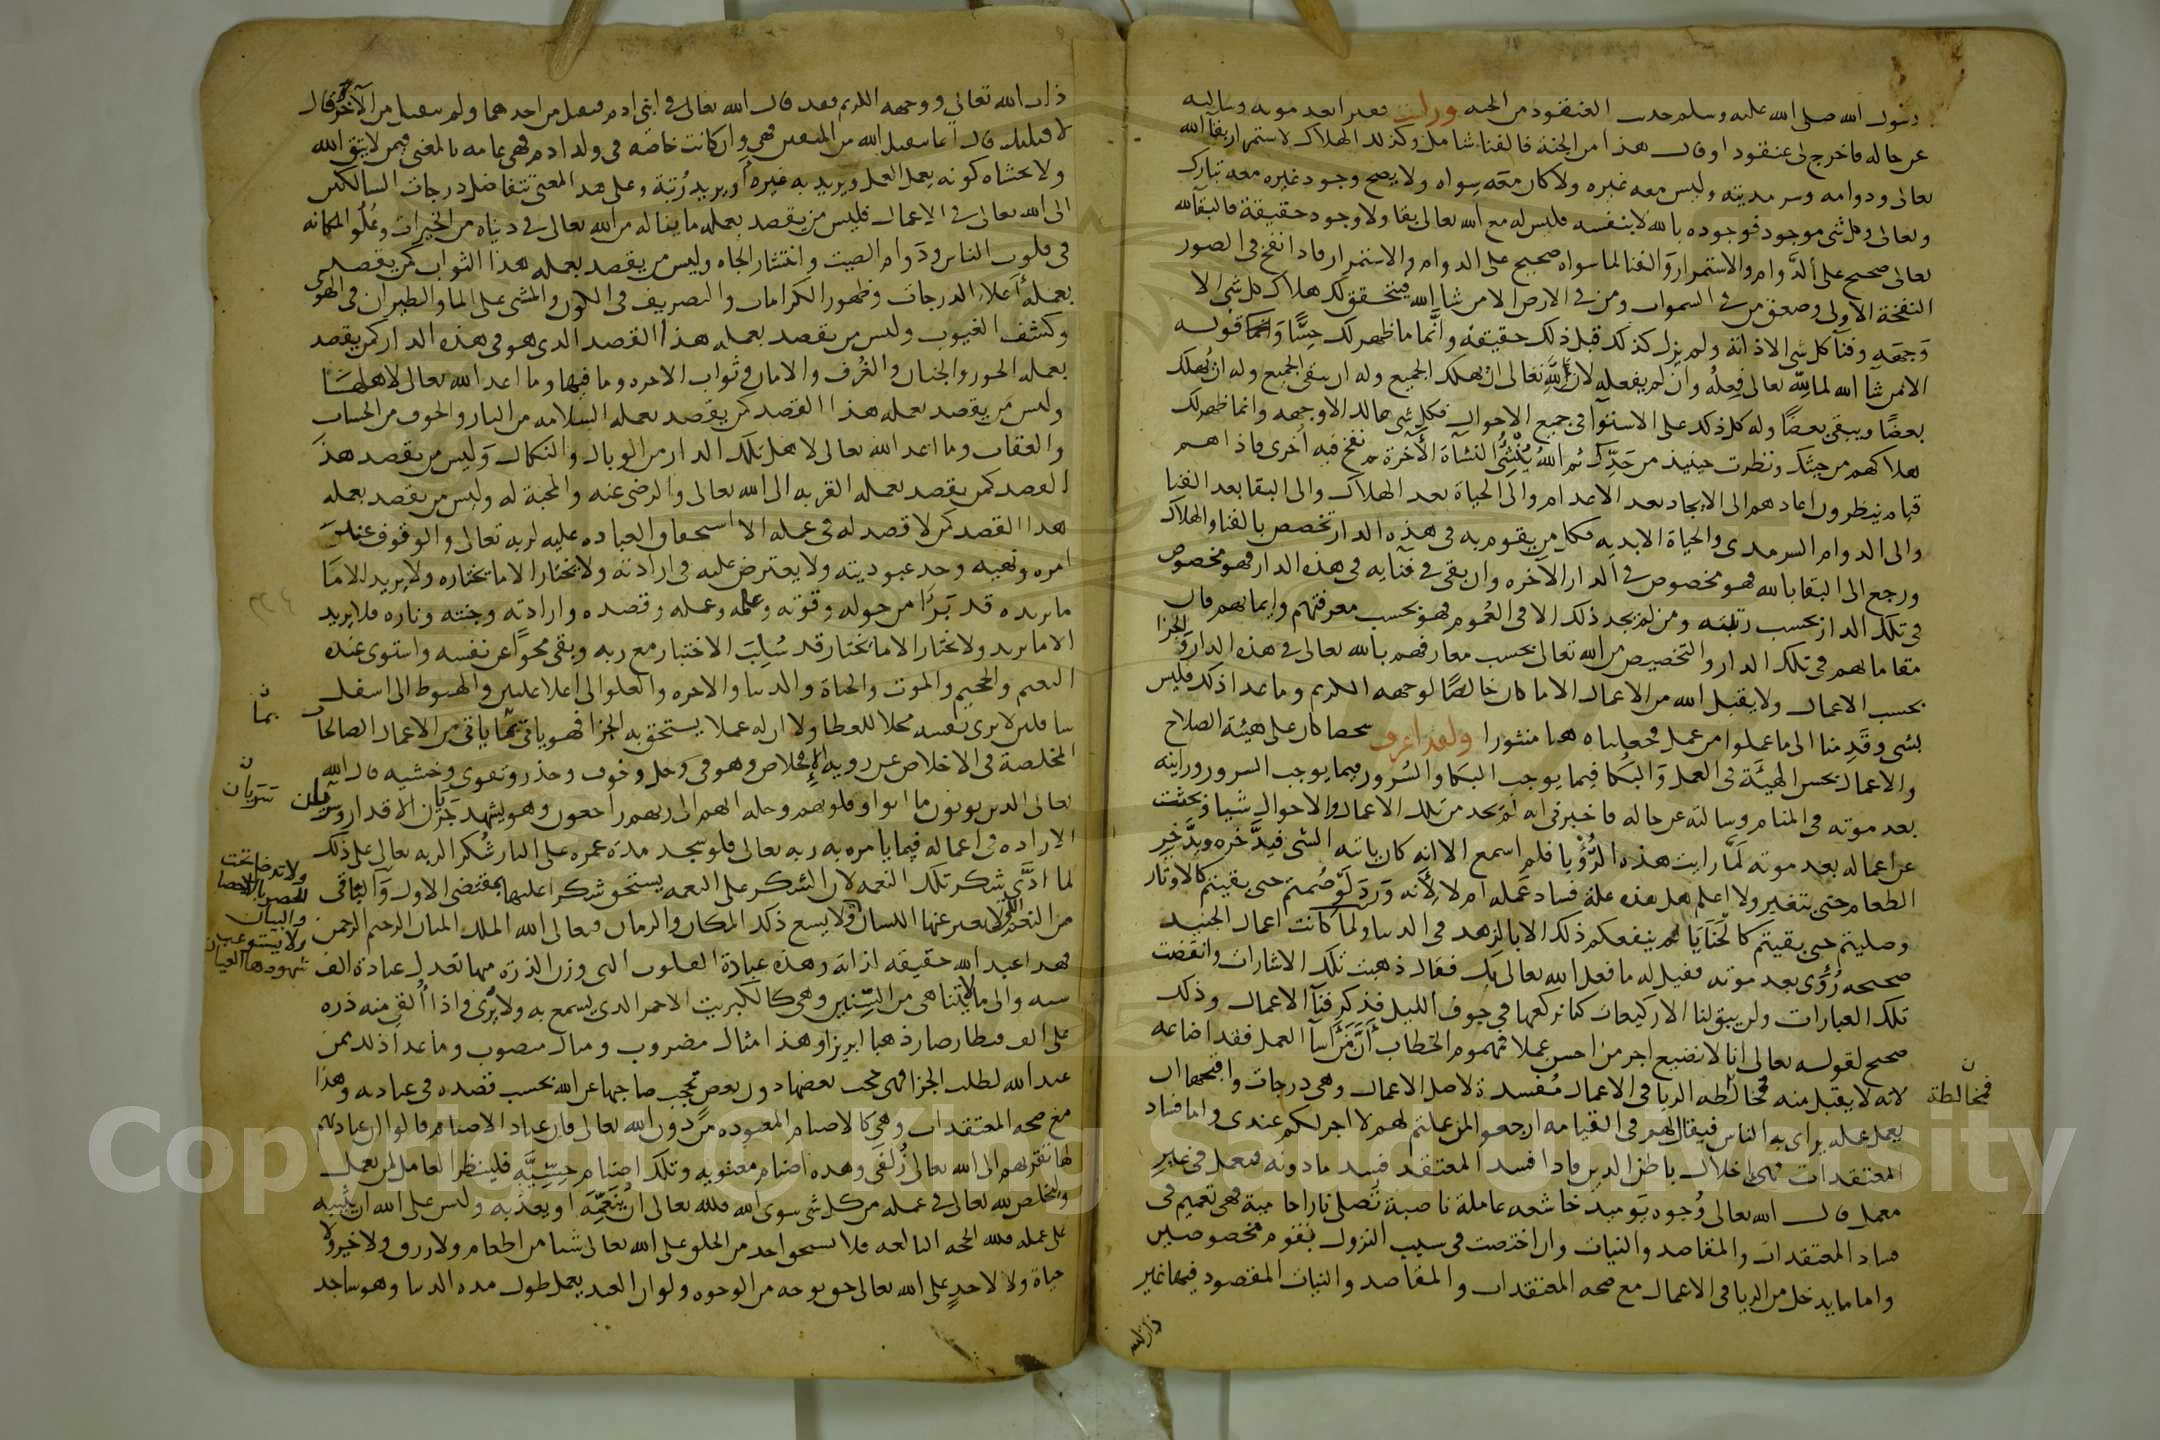 رسول الله صلى الله عليه وسلم حدث العنقود من الجنة ورايت فقيرا بعد موته وسالته
عن حاله فاخرج لى عنقودا وقال هذا من الجنة فالفنا شامل وكذلك الهلاك لاستمرار بقآ الله
تعالى ودوامه وسرمديته وليس معه غيره ولا كان معه سواه ولا يصح وجود غيره معه تبارك
وتعالى وكل شى موجود فوجوده بالله لا بنفسه فليس له مع الله تعالى بقا ولا وجود حقيقة فالبقآ لله
تعالى صحيح على الدوام والاستمرار والفنا لما سواه صحيح على الدوام والاستمرار فاذا نفخ فى الصور
النفخة الاولى وصعق من فى السموات ومن فى الارض الا من شا الله فيتحقق لك هلاك كل شى الا
وجهه وفنآ كل شى الا ذاته ولم يزل كذلك قبل ذلك حقيقة وانما ما ظهر لك حسًّا وانما قوله
الا من شآ الله لما لله تعالى فعله وان لم يفعله لان لله تعالى ان يهلك الجميع وله ان يبقى الجميع وله ان يهلك
بعضًا ويبقى بعضًا وله كل ذلك على الاستوآ فى جميع الاحوال فكل شى هالك الا وجهه وانما ظهر لك
هلاكهم من حيثك ونظرت حينيذ من حدّك ثم اللهُ يُنْشِئُ النشأة الآخرة ثم نفخ فيه اخرى فاذا هم
قيام ينظرون اعادهم الى الايجاد بعد الاعدام والى الحياة بعد الهلاك والى البقا بعد الفنا
والى الدوام السرمدى والحياة الابديه فكل من يقوم به فى هذه الدار تخصص بالفنا والهلاك
ورجع الى البقا بالله فهو مخصوص فى الدار الآخره وان بقى فى فنآيه فى هذه الدار فهو مخصوص
فى تلك الدار بحسب رتبته ومن لم يجد ذلك الا فى العُموم فهو بحسب معرفتهم وايمانهم فان
مقاماتهم فى تلك الدار والتخصيص من الله تعالى بحسب معارفهم بالله تعالى فى هذه الدار والجزا
بحسب الاعمال ولا يقبل الله من الاعمال الا ما كان خالصًا لوجهه الكريم وما عدا ذلك فليس
بشى وقَدِمنا الى ما عملوا من عمل فجعلناه هبا منثورا ولقد اعرف شخصا كان على هيئة الصلاح
والاعمال بحسن الهيئَة فى العمل وَالبُكا فيما يوجب البكا والسُرور فيما يوجب السرور ورايته
بعد موته فى المنام وسالته عن حاله فاخبرنى انه لم يجد من تلك الاعمال والاحوال شيا وبحثت
عن اعماله بعد موته لَمّا رايت هذه الرُّؤْيا فلم اسمع الا انه كان ياتيه الشى فيدَّخره ويدَّخر
الطعام حتى يتغير ولا اعلم هل هذه علة فساد عَمله ام لا لِأَنه وَرَدَ لَوْ صُمتم حتى بقيتم كالاوتار
وصليتم حتى بقيتم كالْحَنَايَا لم ينفعكم ذلك الا بالزهد فى الدنيا ولما كانت اعمال الجنيد
صحيحه رُؤى بعد موته فقيل له ما فعل الله تعالى بك فقال ذهبت تلك الاشارات وانقضت
تلك العبارات ولم يبق لنا الا ركيعات كنا نركعها فى جوف الليل فذكر فنآ الاعمال وذكر
صحيح لقوله تعالى انا لا نضيع اجر من احسن عملا فمفهوم الخطاب أنَّ مَنْ أَسآ العمل فقد اضاعه
لانه لا يقبل منه فمخالطه الريا فى الاعمال مُفسدة لاصل الاعمال وهى درجات واقبحها ان
يعمل عمله يراى به الناس فيقال لهم فى القيامه ارجعوا لمن عملتم لهم لا اجر لكم عندى واما فساد
المعتقدات فهى اخلال باطن الدين فاذا فسد المعتقد فسد ما دونه فيعمل فى غير
معمل قال الله تعالى وُجوه يَوميذ خاشعه عاملة ناصبة تصلى نارا حامية فهى تعميم فى
فساد المعتقدات والمقاصد والنيات وان اختصت فى سبب النزول بقوم مخصوصين
واما ما يدخل من الريا فى الاعمال مع صحه المعتقدات والمقاصد والنيات المقصود فيها غير
فمخالطة
ذات الله
ذات الله تعالى ووجهه الكريم فقد قال الله تعالى فى ابنى ادم فتقبل من احدهما ولم يتقبل من الآخر قال
لاقتلنك قال انما يتقبل الله من المتقين فهى وان كانت خاصه فى ولد ادم فهى عامه بالمعنى فيمن لا يتق الله
ولا يخشاه كونه يعمل العمل ويريد به غيره أو يريد رُتبة وعلى هذا المعنى تتفاضل درجات السالكين
الى الله تعالى فى الاعمال فليس من يقصد بعمله ما يناله من الله تعالى فى دنياه من الخيرات وعُلُو المكانه
فى قلوب الناس ودَوام الصيت وانتشار الجاه وليس من يقصد بعمله هذا الثواب كمن يقصد
بعمله أعلاء الدرجات وظهور الكرامات والتصريف فى الكون والمشى على الما والطيران فى الهوى
وكشف الغيوب وليس من يقصد بعمله هذا القصد الذى هو فى هذه الدار كمن يقصد
بعمله الحور والجنان والغُرَف والامان وثواب الاخره وما فيها وما اعد الله تعالى لاهلها
وليس من يقصد بعمله هذا القصد كمن يقصد بعمله السلامه من النار والخوف من الحساب
والعقاب وما اعد الله تعالى لاهل تلك الدار من الوبال والنكال وَليس من يقصد هذا
القصد كمن يقصد بعمله القربه الى الله تعالى والرضى عنه والمحبة له وليس من يقصد بعمله
هذا القصد كمن لا قصد له فى عمله الا استحقاق العباده عليه لربه تعالى والوقوف عند
امره ونهيه وحد عبوديته ولا يعترض عليه فى ارادته ولا يختار الا ما يختاره ولا يريد الا ما
يريده قد بَرَا من حوله وقوته وعلمه وعمله وقصده وارادته وجنته وناره فلا يريد
الا ما يريد ولا يختار الا ما يختار قد سُلِبَ الاختيار مع ربه وبقى محوًا عن نفسه واستوى عنده
النعيم والجحيم والموت والحياة والدنيا والاخره والعلو الى اعلا عليين والهبوط الى اسفل
سافلين لا يرى نفسه محلا للعطا ولا ان له عملا يستحق به الجزا فهو ياتى بما ياتى من الاعمال الصالحات
المخلصة فى الاخلاص عن رويه الاخلاص وهو فى وجل وخوف وحذر وتقوى وخشيه قال الله
تعالى الذين يوتون ما اتوا وقلوبهم وجله انهم الى ربهم راجعون وهو يشهد جَرَيَان الاقدار وسريان
الاراده فى اعماله فيما يامره به ربه تعالى فلو سجد مدة عمره على النار شُكرا لربه تعالى على ذلك
لما ادَّى شكر تلك النعمه لان الشكر على النعمه يستحق شكرا عليها بمقتضى الاول والباقى
من النعم لا يعبر عنها اللسان ولا يسع ذلك المكان والزمان فتعالى الله الملك المنان الرحيم الرحمن
فهذا عبد الله حقيقه لذاته وهذه عبادة القلوب التى وزن الذرّة منها تعدل عبادة الف
سنه والى ما لا يتناهى من السِّنين وهى كالكبريت الاحمر الذى يسمع به ولا يُرى فاذا أُلقى منه ذره
على الف قنطار صار ذهبا ابريزا وهذا مثال مضروب ومثال منصوب وما عدا ذلك ممن
عبد الله لطلب الجزا فهى حجب بعضها دون بعض تحجب صاحبها عن الله بحسب قصده فى عبادته وهذا
مع صحه المعتقدات وهى كالاصنام المعبوده من دون الله تعالى فان عباد الاصنام قالوا ان عبادتهم
لها تقربهم الى الله تعالى زُلفى وهذه اصنام معنويه وتلك اصنام حِسِّيَّة فلينظر العامل لمن يعمل
وليخلص لله تعالى فى عمله من كل شى سوى الله فلله تعالى ان يُنَعِّمَه او يعذبه وليس على الله ان يثيبه
على عمله فلله الحجه البالغه فلا يستحق احد من الخلق على الله تعالى شيا من اطعام ولا رزق ولا خير ولا
حياة ولا لاحدٍ على الله تعالى حق بوجه من الوجوه ولو ان العبد يعمل طول مده الدنيا وهو ساجد
بما
سَرَيان
ولا تدخل تحت
الحصر بالاحصا
والبيان
ولا يستوعب
شهودها العيان
Copyright © King Saud University